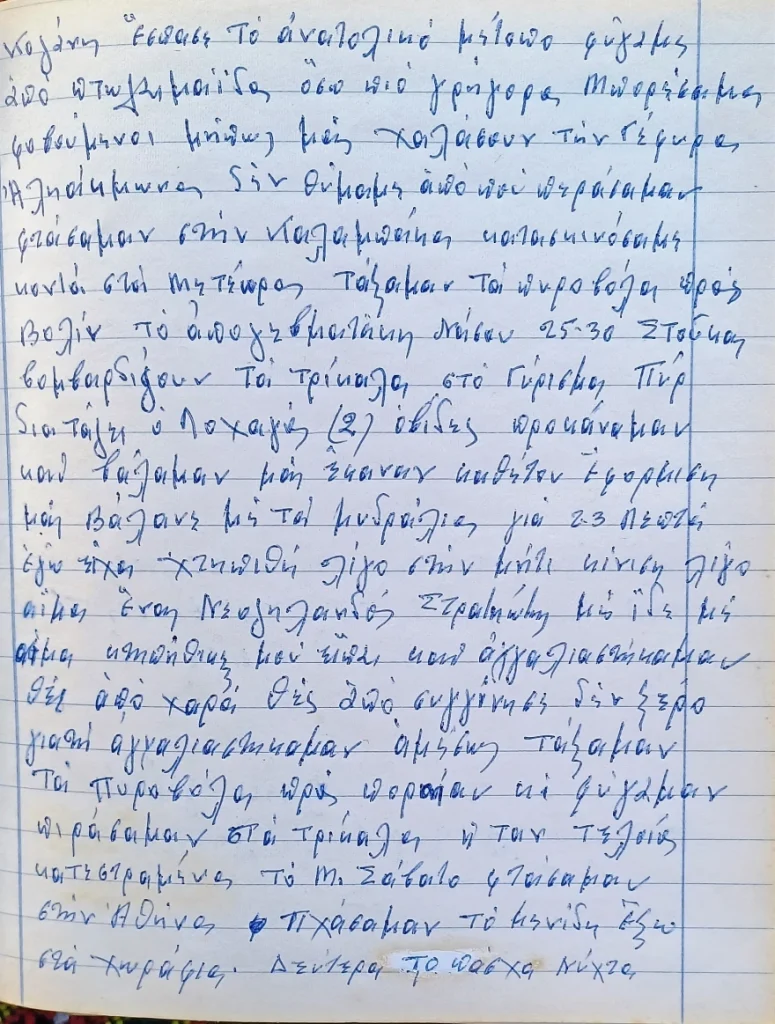 Κοζάνη Ἔσπασε τὸ ἀνατολικό μέτοπο φύγαμε
ἀπὸ πτωλεμαΐδα ὅσο πιό γρήγορα Μπορέσαμε
φοβούμενοι μήπως μᾶς χαλάσουν τὴν Γέφυρα
Ἀλιάκμωνα δὲν θύμαμε ἀπὸ ποῦ περάσαμαν
φτάσαμαν στὴν Καλαμπάκα κατασκινόσαμε
κοντά στά Μετέορα τάξαμαν τά πυροβόλα πρός
βολίν τὸ ἀπογεβματάκη 25-30 Στούκας
βομβαρδίζουν τά τρίκαλα στό Γύρισμα Πῦρ
διατάζει ὁ Λοχαγός (2) ὀβίδες προκάναμαν
καί βάλαμαν μᾶς ἔκαναν καθέτον Ἐφόρμιση
μᾶς Βάλανε μέ τά μυδράλια γιά 2-3 Λεπτά
ἐγώ εἶχα χτηπιθῆ λίγο στήν μήτι κίνιση λίγο
αἵμα ἕνας Νεοζηλανδός Στρατηώτης μέ ἴδε μέ
αἷμα κτηπήθικες μοῦ εἶπε καί ἀγγαλιαστήκαμαν
θές ἀπό χαρά θές ἀπό συγγίνησι δέν ξέρο
γιατή ἀγγαλιαστήκαμαν ἀμέσως τάξαμαν
τά πυροβόλα πρός πορείαν κέ φύγαμαν
πιράσαμαν στά τρίκαλα ἤταν τελεία
κατεστραμένα τό Μ. Σάβατο φτάσαμαν
στήν Ἀθήνα πχάσαμαν τό Μενίδη ἔξω
στά χωράφια. Δευτέρα το πάσχα Νύχτα